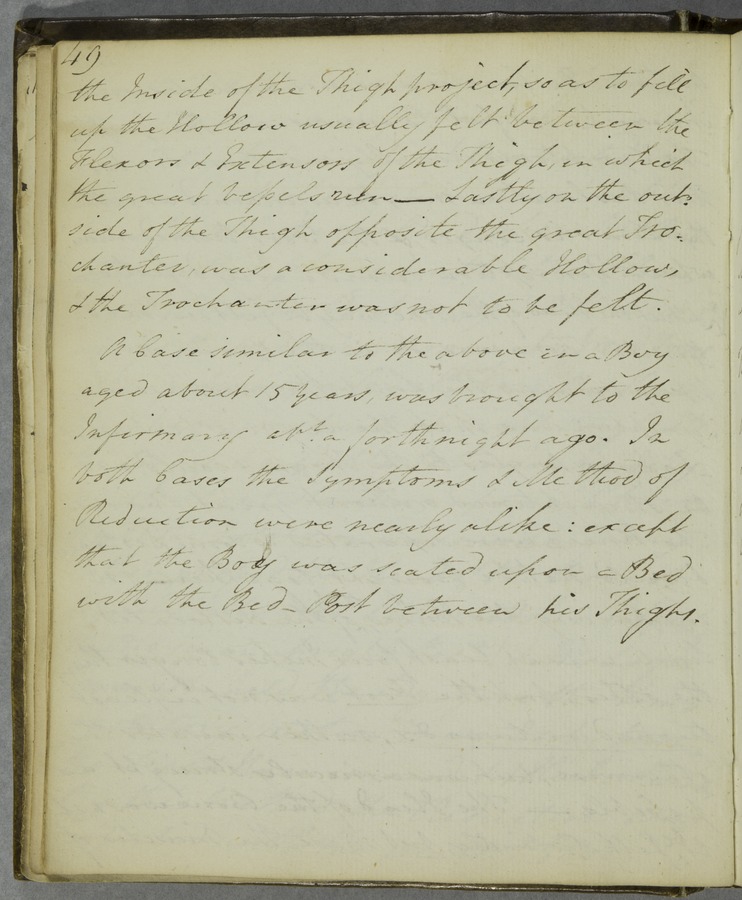 49
the Inside of the Thigh project, so as to fill
up the Hollow usually felt between the
Flexors & Extensors of the Thigh, in which
the great vessels run — Lastly on the out:
side of the Thigh opposite the great Tro:
chanter, was a considerable Hollow,
& the Trochanter was not to be felt.
A Case similar to the above in a Boy
aged about 15 years, was brought to the
Infirmary abt. a forthnight ago. In
both Cases the Symptoms & Method of
Reduction were nearly alike: except
that the Boy was seated upon a Bed
with the Bed-Post between his Thighs.